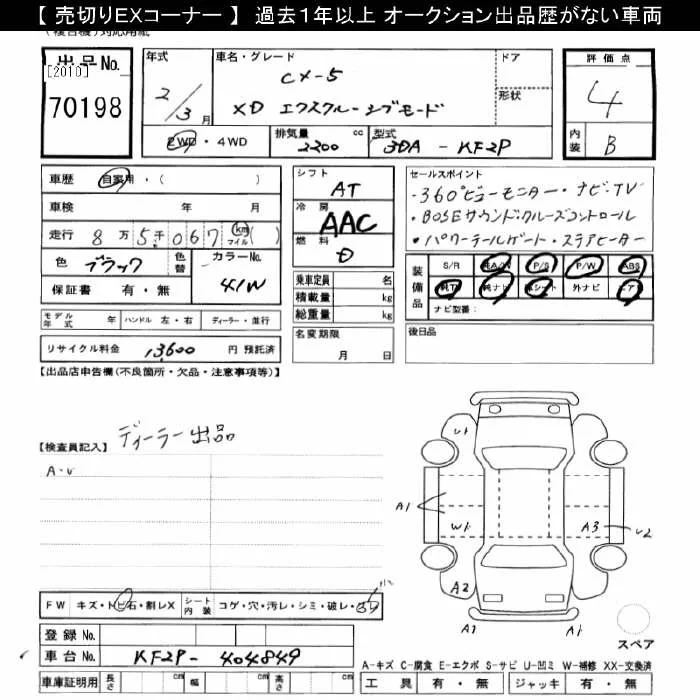 【 売切りEXコーナー 】 過去1年以上 オークション出品歴がない車両
(複合機)対応用紙
出品No.
[2010]
70198
年式
2/3月
車名・グレード
CX-5
XD エクスクルーシブモード
ドア
形状
評価点
4
内装
B
2WD・4WD
排気量 2200 cc
型式 3DA - KF2P
車歴 自家用・( )
車検 年 月
走行 8万5千067 km マイル ( )
色 ブラック
色替
カラーNo. 41W
保証書 有・無
シフト AT
冷房 AAC
燃料
乗車定員 名
積載量 kg
総重量 kg
セールスポイント
・360°ビューモニター・ナビ・TV
・BOSEサウンド・クルーズコントロール
・パワーテールゲート・ステアヒーター
装備品
S/R 純A/W P/S P/W ABS
純TV 純ナビ 革シート 外ナビ エアB
ナビ型番:
モデル年式 年 ハンドル 左・右 ディーラー・並行
リサイクル料金 13,600 円 預託済
名変期限
月 日
後日品
【出品店申告欄(不良箇所・欠品・注意事項等)】
ディーラー出品
【検査員記入】
A・U
U1
A1
W1
A3
U2
A2
A1
A1
スペア
FW キズ・トビ石・割レX
シート内装 コゲ・穴・汚レ・シミ・破レ・
登録No.
車台No. KF2P- 404849
車庫証明用 長さ cm 幅 cm 高さ cm
A-キズ C-腐食 E-エクボ S-サビ U-凹ミ W-補修 XX-交換済
工具 有・無 ジャッキ 有・無